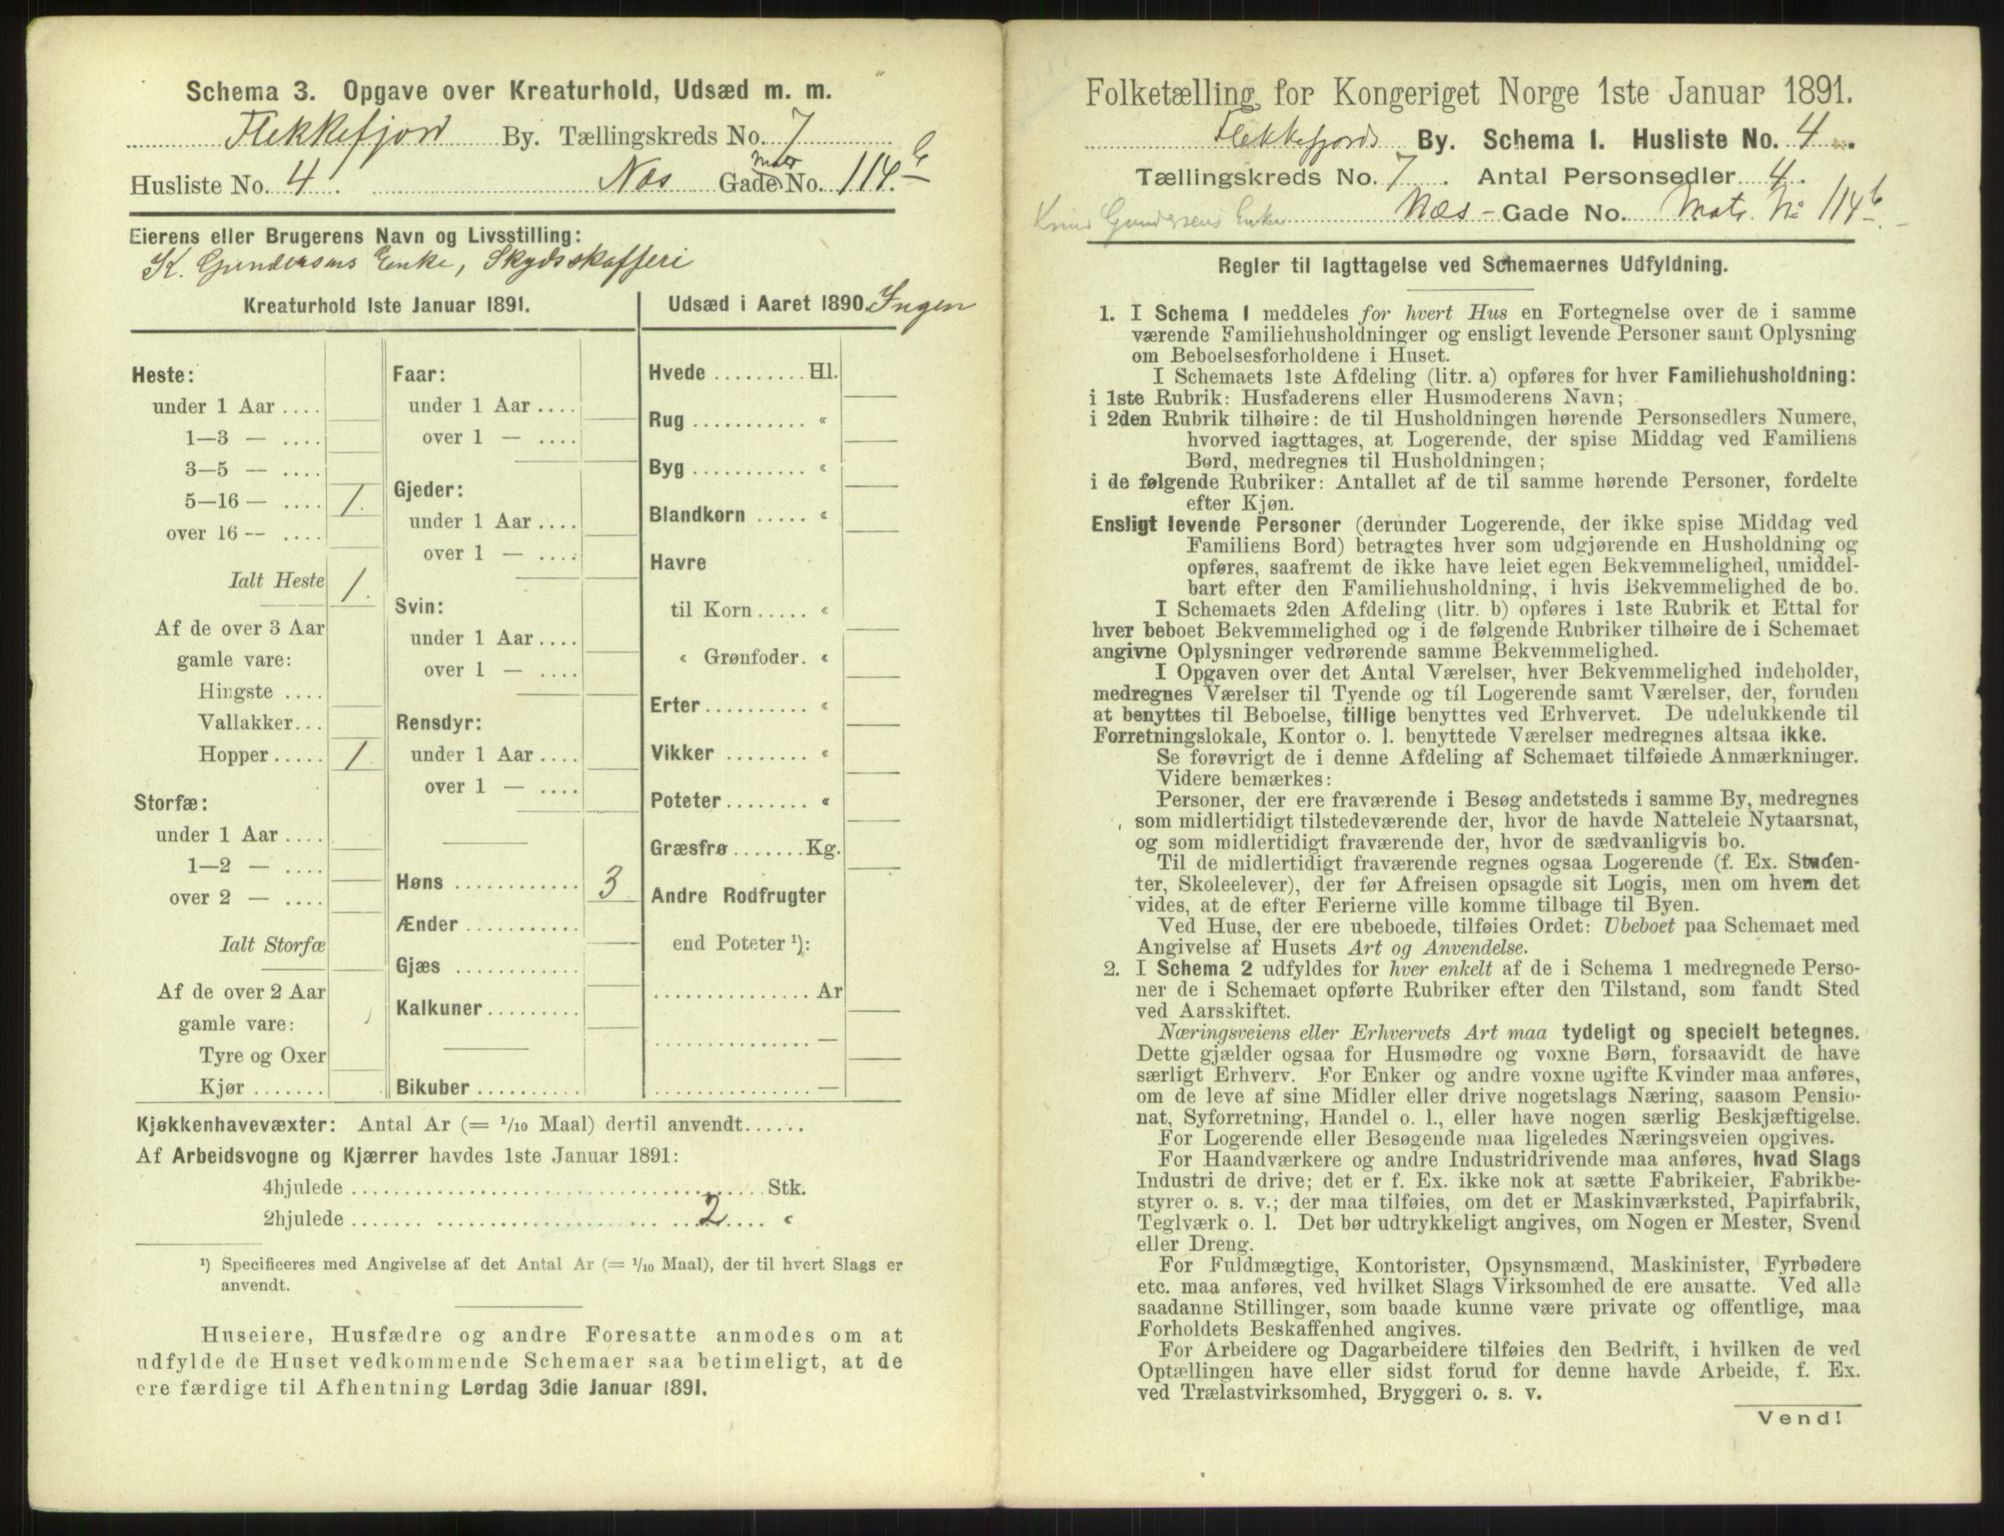 Schema 3. Opgave over Kreaturhold, Udsæd m. m.
Flekkefjord By. Tællingskreds No. 7
Husliste No. 4. Næs Gade No. 114 b
Matr
Eierens eller Brugerens Navn og Livsstilling:
K. Gundersens Enke, Skydsskafferi
Kreaturhold 1ste Januar 1891.
Heste:
under 1 Aar ....
1—3 — ....
3—5 — ....
5—16 — .... 1.
over 16 — ....
Ialt Heste 1.
Af de over 3 Aar
gamle vare:
Hingste ....
Vallakker...
Hopper ..... 1.
Storfæ:
under 1 Aar ....
1—2 — ....
over 2 — ....
Ialt Storfæ
Af de over 2 Aar
gamle vare:
Tyre og Oxer
Kjør .......
Faar:
under 1 Aar ....
over 1 — ....
Gjeder:
under 1 Aar ....
over 1 — ....
Svin:
under 1 Aar ....
over 1 — ....
Rensdyr:
under 1 Aar ....
over 1 — ....
Høns ............ 3
Ænder ...........
Gjæs ............
Kalkuner .........
Bikuber ..........
Udsæd i Aaret 1890. Ingen
Hvede ......... Hl.
Rug ........... «
Byg ........... «
Blandkorn ..... «
Havre
til Korn ..... «
« Grønfoder. «
Erter .......... «
Vikker ........ «
Poteter ........ «
Græsfrø ....... Kg.
Andre Rodfrugter
end Poteter ¹):
............... Ar
............... —
............... —
Kjøkkenhavevæxter: Antal Ar (= 1/10 Maal) dertil anvendt......
Af Arbeidsvogne og Kjærrer havdes 1ste Januar 1891:
4hjulede ........................................ Stk.
2hjulede ........................ 2 .... «
¹) Specificeres med Angivelse af det Antal Ar (= 1/10 Maal), der til hvert Slags er
anvendt.
Huseiere, Husfædre og andre Foresatte anmodes om at
udfylde de Huset vedkommende Schemaer saa betimeligt, at de
ere færdige til Afhentning Lørdag 3die Januar 1891.
Folketælling for Kongeriget Norge 1ste Januar 1891.
Flekkefjords By. Schema I. Husliste No. 4
Tællingskreds No. 7. Antal Personsedler 4.
Knud Gundersens Enke Næs - Gade No. Matr. No 114 b.
Regler til Iagttagelse ved Schemaernes Udfyldning.
1. I Schema 1 meddeles for hvert Hus en Fortegnelse over de i samme
værende Familiehusholdninger og ensligt levende Personer samt Oplysning
om Beboelsesforholdene i Huset.
I Schemaets 1ste Afdeling (litr. a) opføres for hver Familiehusholdning:
i 1ste Rubrik: Husfaderens eller Husmoderens Navn;
i 2den Rubrik tilhøire: de til Husholdningen hørende Personsedlers Numere,
hvorved iagttages, at Logerende, der spise Middag ved Familiens
Bord, medregnes til Husholdningen;
i de følgende Rubriker: Antallet af de til samme hørende Personer, fordelte
efter Kjøn.
Ensligt levende Personer (derunder Logerende, der ikke spise Middag ved
Familiens Bord) betragtes hver som udgjørende en Husholdning og
opføres, saafremt de ikke have leiet egen Bekvemmelighed, umiddel-
bart efter den Familiehusholdning, i hvis Bekvemmelighed de bo.
I Schemaets 2den Afdeling (litr. b) opføres i 1ste Rubrik et Ettal for
hver beboet Bekvemmelighed og i de følgende Rubriker tilhøire de i Schemaet
angivne Oplysninger vedrørende samme Bekvemmelighed.
I Opgaven over det Antal Værelser, hver Bekvemmelighed indeholder,
medregnes Værelser til Tyende og til Logerende samt Værelser, der, foruden
at benyttes til Beboelse, tillige benyttes ved Erhvervet. De udelukkende til
Forretningslokale, Kontor o. l. benyttede Værelser medregnes altsaa ikke.
Se forøvrigt de i denne Afdeling af Schemaet tilføiede Anmærkninger.
Videre bemærkes:
Personer, der ere fraværende i Besøg andetsteds i samme By, medregnes
som midlertidigt tilstedeværende der, hvor de havde Natteleie Nytaarsnat,
og som midlertidigt fraværende der, hvor de sædvanligvis bo.
Til de midlertidigt fraværende regnes ogsaa Logerende (f. Ex. Studen-
ter, Skoleelever), der før Afreisen opsagde sit Logis, men om hvem det
vides, at de efter Ferierne ville komme tilbage til Byen.
Ved Huse, der ere ubeboede, tilføies Ordet: Ubeboet paa Schemaet med
Angivelse af Husets Art og Anvendelse.
2. I Schema 2 udfyldes for hver enkelt af de i Schema 1 medregnede Perso-
ner de i Schemaet opførte Rubriker efter den Tilstand, som fandt Sted
ved Aarsskiftet.
Næringsveiens eller Erhvervets Art maa tydeligt og specielt betegnes.
Dette gjælder ogsaa for Husmødre og voxne Børn, forsaavidt de have
særligt Erhverv. For Enker og andre voxne ugifte Kvinder maa anføres,
om de leve af sine Midler eller drive nogetslags Næring, saasom Pensio-
nat, Syforretning, Handel o. l., eller have nogen særlig Beskjæftigelse.
For Logerende eller Besøgende maa ligeledes Næringsveien opgives.
For Haandværkere og andre Industridrivende maa anføres, hvad Slags
Industri de drive; det er f. Ex. ikke nok at sætte Fabrikeier, Fabrikbe-
styrer o. s. v.; der maa tilføies, om det er Maskinværksted, Papirfabrik,
Teglværk o. l. Det bør udtrykkeligt angives, om Nogen er Mester, Svend
eller Dreng.
For Fuldmægtige, Kontorister, Opsynsmænd, Maskinister, Fyrbødere
etc. maa anføres, ved hvilket Slags Virksomhed de ere ansatte. Ved alle
saadanne Stillinger, som baade kunne være private og offentlige, maa
Forholdets Beskaffenhed angives.
For Arbeidere og Dagarbeidere tilføies den Bedrift, i hvilken de ved
Optællingen have eller sidst forud for denne havde Arbeide, f. Ex.
ved Trælastvirksomhed, Bryggeri o. s. v.
Vend!